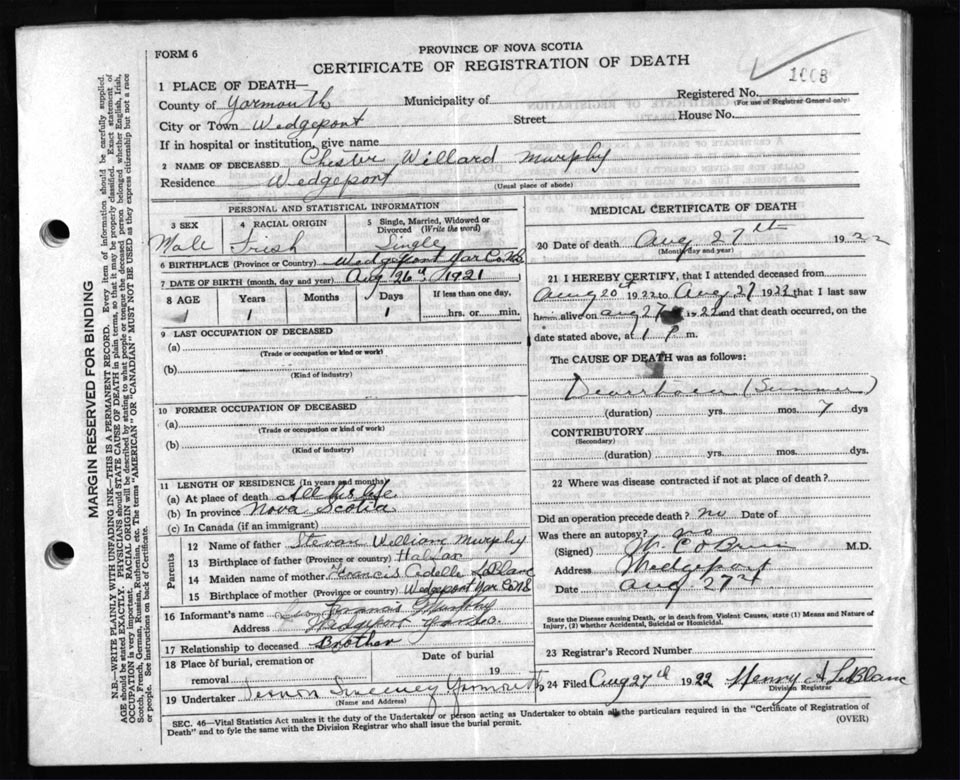 FORM 6
PROVINCE OF NOVA SCOTIA
CERTIFICATE OF REGISTRATION OF DEATH
1008
1 PLACE OF DEATH—
Registered No.
(For use of Registrar General only)
County of Yarmouth Municipality of
City or Town Wedgeport Street House No.
If in hospital or institution, give name
2 NAME OF DECEASED Chester Willard Murphy
Residence Wedgeport (Usual place of abode)
PERSONAL AND STATISTICAL INFORMATION
3 SEX Male
4 RACIAL ORIGIN Irish
5 Single, Married, Widowed or Divorced (Write the word) Single
6 BIRTHPLACE (Province or Country) Wedgeport Yar Co. N.S.
7 DATE OF BIRTH (month, day and year) Aug 26 1921
8 AGE Years Months Days If less than one day,
1 1 1 hrs. or min.
9 LAST OCCUPATION OF DECEASED
(a)
(Trade or occupation or kind or work)
(b)
(Kind of industry)
10 FORMER OCCUPATION OF DECEASED
(a)
(Trade or occupation or kind or work)
(b)
(Kind of industry)
11 LENGTH OF RESIDENCE (In years and months)
(a) At place of death All his life
(b) In province Nova Scotia
(c) In Canada (if an immigrant)
Parents
12 Name of father Stevan William Murphy
13 Birthplace of father (Province or country) Halifax
14 Maiden name of mother Francis Adelle LeBlanc
15 Birthplace of mother (Province or country) Wedgeport Yar Co. N.S
16 Informant's name Francis Murphy
Address Wedgeport Yar
17 Relationship to deceased Brother
18 Place of burial, cremation or removal Date of burial 19
19 Undertaker Vernon Sweeney Yarmouth
(Name and Address)
MEDICAL CERTIFICATE OF DEATH
20 Date of death Aug 27th 1922
(Month day and year)
21 I HEREBY CERTIFY, that I attended deceased from
Aug 20th 1922 to Aug 27 1922 that I last saw
h alive on Aug 27 1922 and that death occurred, on the
date stated above, at 1 P. m.
The CAUSE OF DEATH was as follows:
Dearrhoea (Summer)
(duration) yrs. mos. 7 dys
CONTRIBUTORY
(Secondary)
(duration) yrs. mos. dys.
22 Where was disease contracted if not at place of death?
Did an operation precede death? no Date of
Was there an autopsy? no
(Signed) M. C O'Brien M.D.
Address Wedgeport
Date Aug 27th
State the Disease causing Death, or in death from Violent Causes, state (1) Means and Nature of
Injury, (2) whether Accidental, Suicidal or Homicidal.
23 Registrar's Record Number
24 Filed Aug 27th 1922 Henry A LeBlanc
Division Registrar
SEC. 46—Vital Statistics Act makes it the duty of the Undertaker or person acting as Undertaker to obtain all the particulars required in the "Certificate of Registration of
Death" and to fyle the same with the Division Registrar who shall issue the burial permit. (OVER)
MARGIN RESERVED FOR BINDING
N.B.—WRITE PLAINLY WITH UNFADING INK—THIS IS A PERMANENT RECORD. Every item of information should be carefully supplied.
AGE should be stated EXACTLY. PHYSICIANS should STATE CAUSE OF DEATH in plain terms, so that it may be properly classified. Exact statement of
OCCUPATION is very important. RACIAL ORIGIN will be described by stating to what people or tongue the deceased person belonged whether English, Irish,
Scotch, French, German, Russian, Ruthenian, etc. The terms "AMERICAN" OR "CANADIAN" MUST NOT BE USED as they express citizenship but not a race
or people. See instructions on back of Certificate.